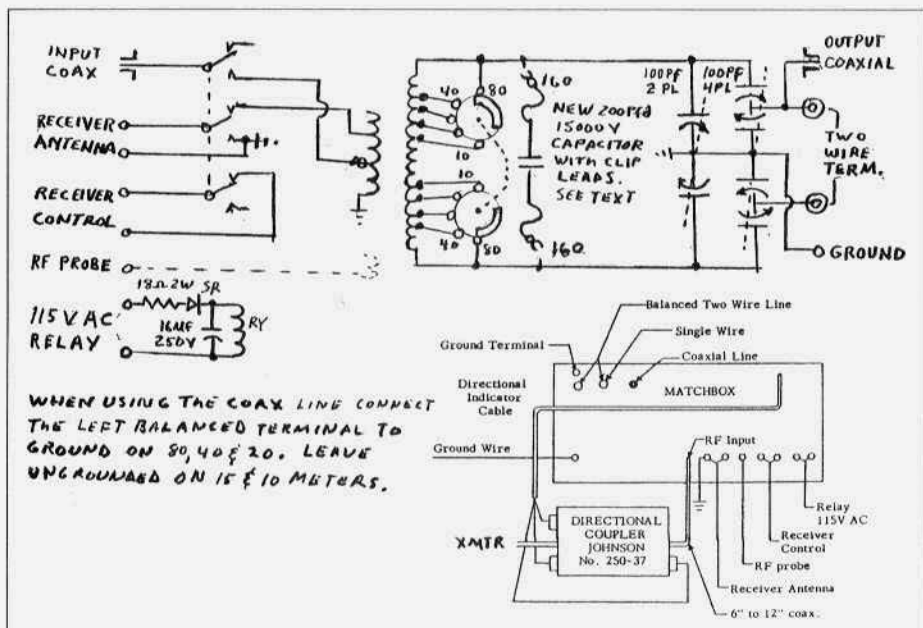 INPUT
COAX
RECEIVER
ANTENNA
RECEIVER
CONTROL
RF PROBE
18Ω 2W SR
115V AC
RELAY
16MF
250V
RY
40 80
10
10
40 80
160
NEW 200PFD
15000V
CAPACITOR
WITH CLIP
LEADS.
SEE TEXT
160
100PF
2 PL
100PF
4PL
OUTPUT
COAXIAL
TWO
WIRE
TERM.
GROUND
WHEN USING THE COAX LINE CONNECT
THE LEFT BALANCED TERMINAL TO
GROUND ON 80, 40 & 20. LEAVE
UNGROUNDED ON 15 & 10 METERS.
Balanced Two Wire Line
Single Wire
Ground Terminal
Coaxial Line
Directional
Indicator
Cable
MATCHBOX
Ground Wire
RF Input
XMTR
DIRECTIONAL
COUPLER
JOHNSON
No. 250-37
Relay
115V AC
Receiver
Control
RF probe
Receiver Antenna
6" to 12" coax.